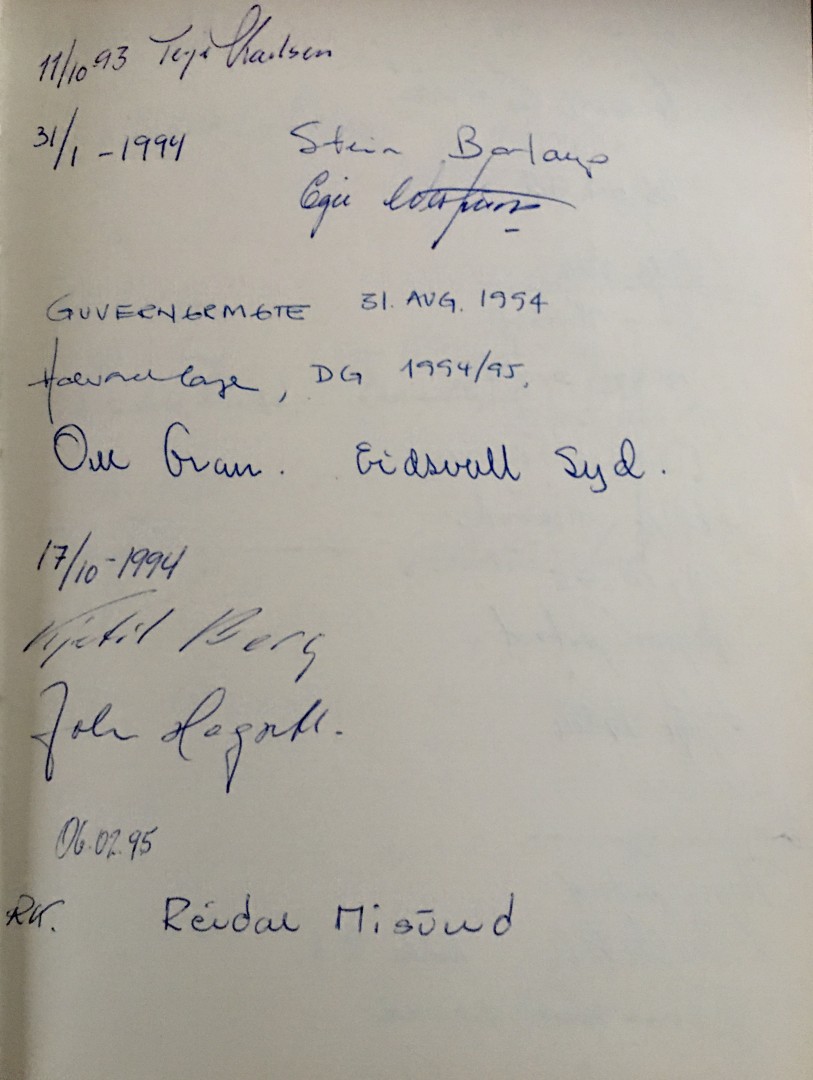 11/10 93 Terje Karlsen
31/1 - 1994 Stein Barlaup
Egil
GUVERNØRMØTE 31. AUG. 1994
DG 1994/95,
Ole Gran. Eidsvoll Syd.
17/10-1994
Kjetil Berg
John
06.02.95
RK. Reidar Misund